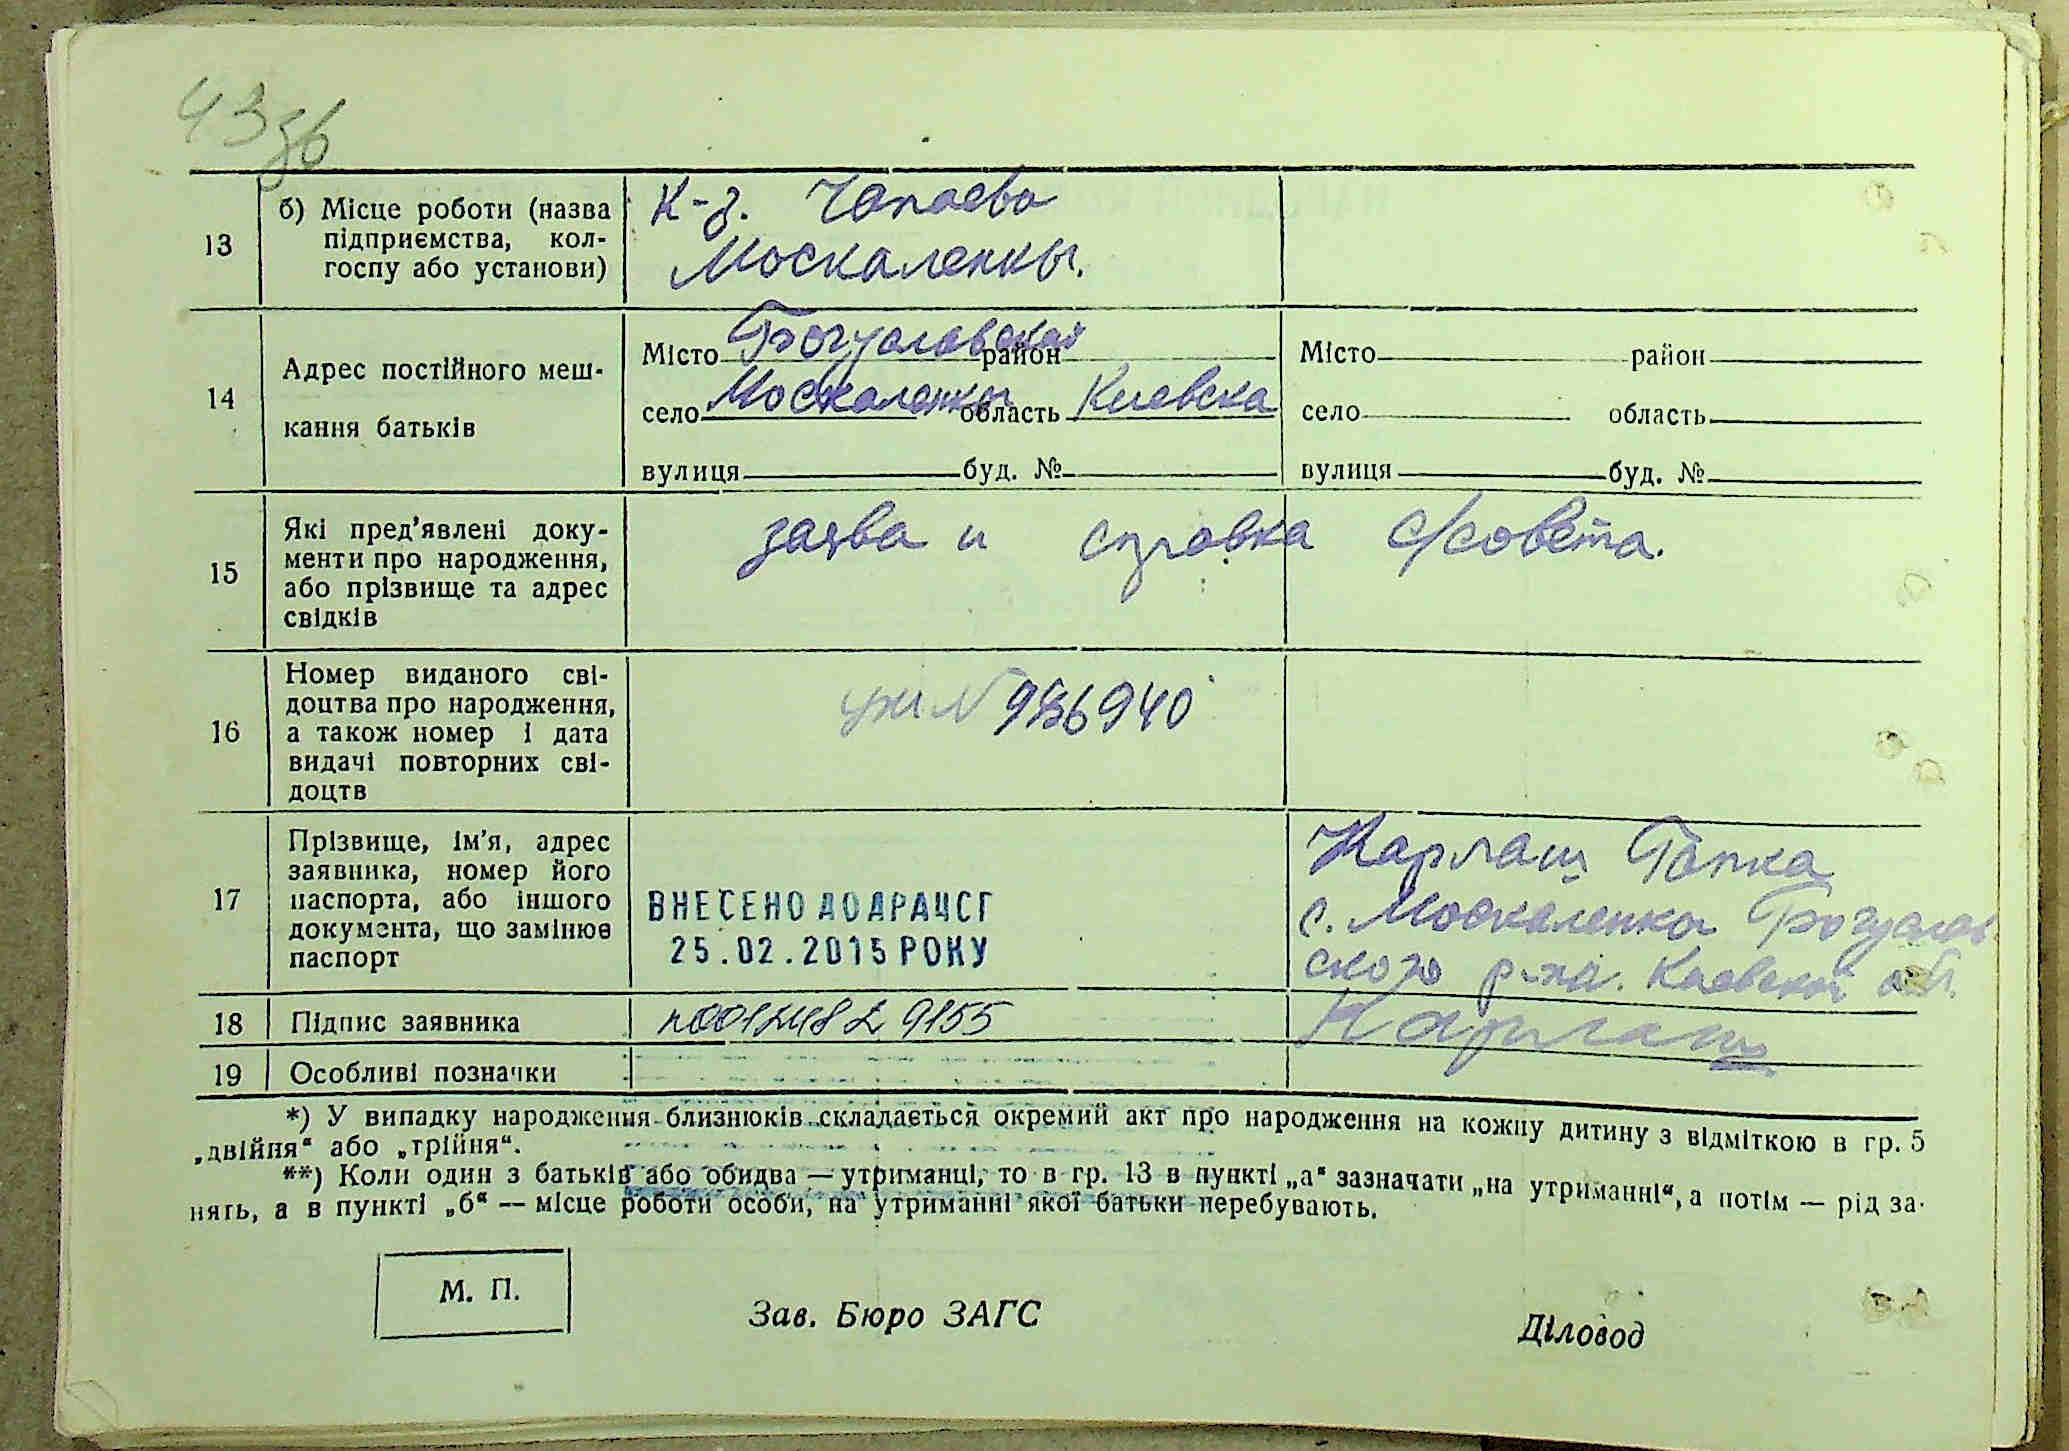 43зв
13
б) Місце роботи (назва
підприємства, кол-
госпу або установи)
К-з. Чапаева
Москаленкы.
14
Адрес постійного меш-
кання батьків
Місто Богуславская район
село Москаленкы область Киевска
вулиця буд. №
Місто район
село область
вулиця буд. №
15
Які пред’явлені доку-
менти про народження,
або прізвище та адрес
свідків
заява и справка с/совета.
16
Номер виданого сві-
доцтва про народження,
а також номер і дата
видачі повторних сві-
доцтв
№
17
Прізвище, ім’я, адрес
заявника, номер його
паспорта, або іншого
документа, що замінює
паспорт
ВНЕСЕНО ДО ДРАЦСГ
25.02.2015 РОКУ
Карлаш Гапка
с. Москаленки Богуслав
ского р-на. Киевской обл.
18
Підпис заявника
Карлаш
19
Особливі позначки
*) У випадку народження близнюків складається окремий акт про народження на кожну дитину з відміткою в гр. 5
„двійня“ або „трійня“.
**) Коли один з батьків або обидва — утриманці, то в гр. 13 в пункті „а“ зазначати „на утриманні“, а потім — рід за-
нять, а в пункті „б“ — місце роботи особи, на утриманні якої батьки перебувають.
М. П.
Зав. Бюро ЗАГС
Діловод